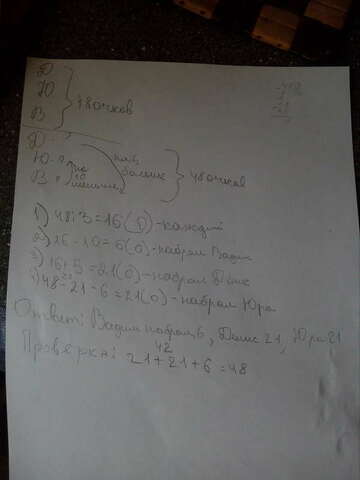 Д
Ю
В
} 48 очков
Д -
Ю - ?
В - ?
на 5
больше
на 10
меньше
} 48 очков
1) 48:3=16 (О) - каждый
2) 16-10=6(О) - набрал Вадим
3) 16+5=21(О) - набрал Денис
4) 48-21-6=21(О) - набрал Юра
Ответ: Вадим набрал 6, Денис 21, Юра 21
Проверка: 21+21+6=48
42